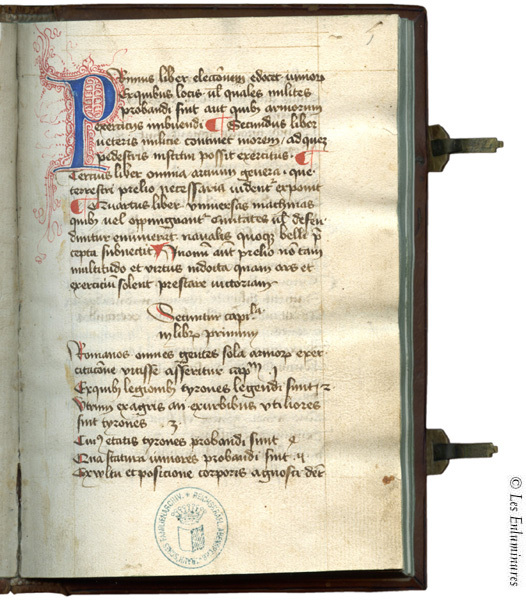 5
Primus liber electionem edocet iuniorum
Exquibus locis vel quales milites
probandi sint aut quibus armorum
exercicijs imbuendi Secundus liber
veteris milicie continet morem, ad quem
pedestris institui possit exercitus
Tercius liber omnia arcium genera que
terrestri prelio necessaria videntur exponit
Quartus liber universas machinas
quibus vel oppugnantur civitates vel defen
duntur enumerat navalis quoque belli pre
cepta subnectit In omni autem prelio non tam
multitudo et virtus indocta quam ars et
exercicium solent prestare victoriam
Secuntur capitula
in librum primum
Romanos omnes gentes sola armorum exer
citacione vicisse asseritur Capm 1
Ex quibus legionibus tyrones legendi sint 2
Utrum ex agris an ex urbibus utiliores
sint tyrones 3
Cuius etatis tyrones probandi sunt 4
Qua statura iuniores probandi sint 5
Ex vultu et posicione corporis agnosci debet
© Les Enluminures